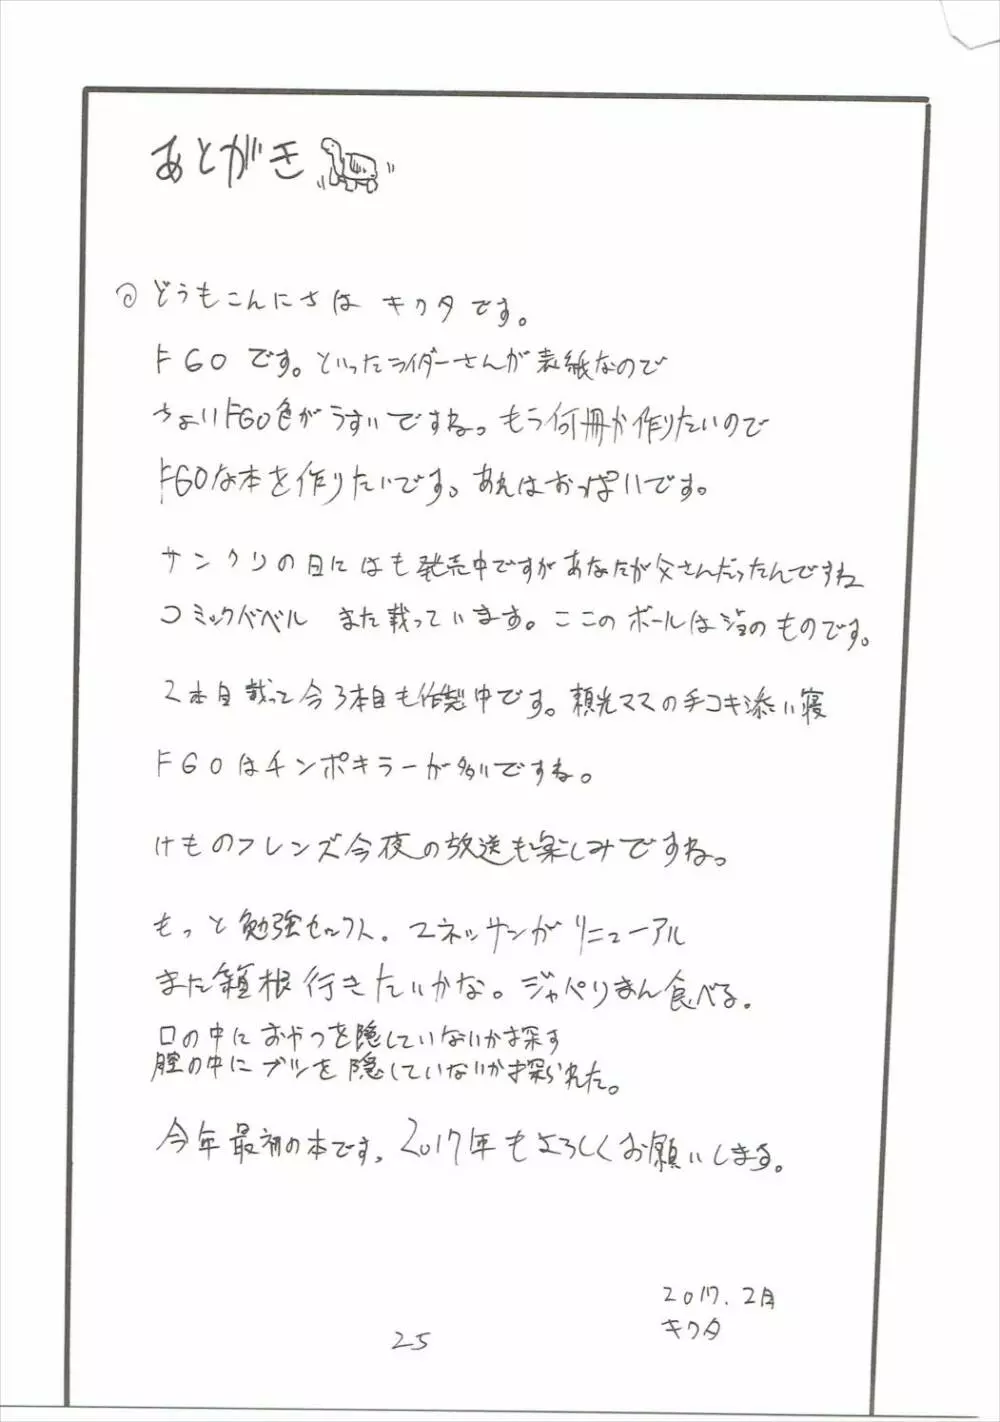 あとがき
どうもこんにちは キクタです。
FGOです。といったライダーさんが表紙なので
ちょいFGO色がうすいですね。もう何冊か作りたいので
FGOな本を作りたいです。あれはおっぱいです。
サンクリの日にはも発売中ですがあなたが父さんだったんですね
コミックバベル また載っています。ここのボールはジョのものです。
2本目載って今3本目も作製中です。頼光ママの手コキ添い寝
FGOはチンポキラーが多いですね。
けものフレンズ今夜の放送も楽しみですね。
もっと勉強せい。ユネッサンがリニューアル
また箱根行きたいかな。ジャパリまん食べる。
口の中におやつを隠していないか探す
膣の中にブツを隠していないか探られた。
今年最初の本です。2017年もよろしくお願いします。
2017.2月
キクタ
25